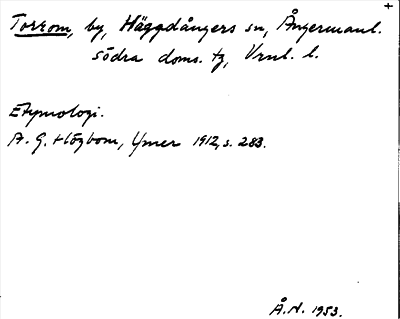 +
Torrom, by, Häggdångers sn, Ångermanl.
södra doms. tg, Vrnl. l.
Etymologi.
A. G. Högbom, Ymer 1912, s. 283.
Å.N. 1953.